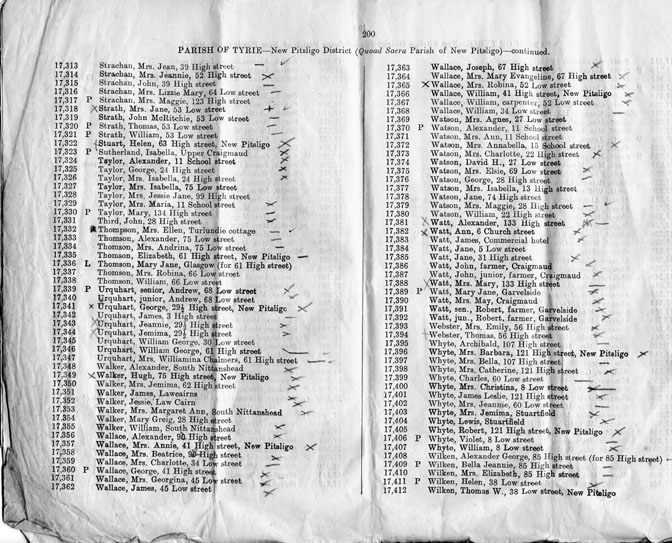 200
PARISH OF TYRIE—New Pitsligo District (Quoad Sacra Parish of New Pitsligo)—continued.
17,313 Strachan, Mrs. Jean, 39 High street
17,314 Strachan, Mrs. Jeannie, 52 High street
17,315 Strachan, John, 39 High street
17,316 Strachan, Mrs. Lizzie Mary, 64 Low street
17,317 P Strachan, Mrs. Maggie, 123 High street
17,318 Strath, Mrs. Jane, 53 Low street
17,319 Strath, John McRitchie, 53 Low street
17,320 P Strath, Thomas, 53 Low street
17,321 P Strath, William, 53 Low street
17,322 Stuart, Helen, 63 High street, New Pitsligo
17,323 P Sutherland, Isabella, Upper Craigmaud
17,324 Taylor, Alexander, 11 School street
17,325 Taylor, George, 24 High street
17,326 Taylor, Mrs. Isabella, 24 High street
17,327 Taylor, Mrs. Isabella, 75 Low street
17,328 Taylor, Mrs. Jessie Jane, 99 High street
17,329 Taylor, Mrs. Maria, 11 School street
17,330 P Taylor, Mary, 134 High street
17,331 Third, John, 28 High street
17,332 Thompson, Mrs. Ellen, Turlundie cottage
17,333 Thomson, Alexander, 75 Low street
17,334 Thomson, Mrs. Andrina, 75 Low street
17,335 Thomson, Elizabeth, 61 High street, New Pitsligo
17,336 L Thomson, Mary Jane, Glasgow (for 61 High street)
17,337 Thomson, Mrs. Robina, 66 Low street
17,338 Thomson, William, 66 Low street
17,339 P Urquhart, senior, Andrew, 68 Low street
17,340 Urquhart, junior, Andrew, 68 Low street
17,341 Urquhart, George, 29½ High street, New Pitsligo
17,342 Urquhart, James, 3 High street
17,343 Urquhart, Jeannie, 29½ High street
17,344 Urquhart, Jemima, 29½ High street
17,345 Urquhart, William George, 30 Low street
17,346 Urquhart, William George, 61 High street
17,347 Urquhart, Mrs. Williamina Chalmers, 61 High street
17,348 Walker, Alexander, South Nittanshead
17,349 Walker, Hugh, 75 High street, New Pitsligo
17,350 Walker, Mrs. Jemima, 62 High street
17,351 Walker, James, Lawcairns
17,352 Walker, Jessie, Law Cairn
17,353 Walker, Mrs. Margaret Ann, South Nittanshead
17,354 Walker, Mary Greig, 28 High street
17,355 Walker, William, South Nittanshead
17,356 Wallace, Alexander, High street
17,357 Wallace, Mrs. Annie, 41 High street, New Pitsligo
17,358 Wallace, Mrs. Beatrice, High street
17,359 Wallace, Mrs. Charlotte, 34 Low street
17,360 P Wallace, George, 41 High street
17,361 Wallace, Mrs. Georgina, 45 Low street
17,362 Wallace, James, 45 Low street
17,363 Wallace, Joseph, 67 High street
17,364 Wallace, Mrs. Mary Evangeline, 67 High street
17,365 Wallace, Mrs. Robina, 52 Low street
17,366 Wallace, William, 41 High street, New Pitsligo
17,367 Wallace, William, carpenter, 52 Low street
17,368 Wallace, William, 34 Low street
17,369 Watson, Mrs. Agnes, 27 Low street
17,370 P Watson, Alexander, 11 School street
17,371 Watson, Mrs. Ann, 11 School street
17,372 Watson, Mrs. Annabella, 15 School street
17,373 Watson, Mrs. Charlotte, 22 High street
17,374 Watson, David H., 27 Low street
17,375 Watson, Mrs. Elsie, 69 Low street
17,376 Watson, George, 28 High street
17,377 Watson, Mrs. Isabella, 13 High street
17,378 Watson, Jane, 74 High street
17,379 Watson, Mrs. Maggie, 28 High street
17,380 Watson, William, 22 High street
17,381 Watt, Alexander, 133 High street
17,382 Watt, Ann, 6 Church street
17,383 Watt, James, Commercial hotel
17,384 Watt, Jane, 5 Low street
17,385 Watt, Jane, 31 High street
17,386 Watt, John, farmer, Craigmaud
17,387 Watt, John, junior, farmer, Craigmaud
17,388 Watt, Mrs. Mary, 133 High street
17,389 P Watt, Mary Jane, Garvelside
17,390 Watt, Mrs. May, Craigmaud
17,391 Watt, sen., Robert, farmer, Garvelside
17,392 Watt, jun., Robert, farmer, Garvelside
17,393 Webster, Mrs. Emily, 56 High street
17,394 Webster, Thomas, 56 High street
17,395 Whyte, Archibald, 107 High street
17,396 Whyte, Mrs. Barbara, 121 High street, New Pitsligo
17,397 Whyte, Mrs. Bella, 107 High street
17,398 Whyte, Mrs. Catherine, 121 High street
17,399 Whyte, Charles, 60 Low street
17,400 Whyte, Mrs. Christina, 8 Low street
17,401 Whyte, James Leslie, 121 High street
17,402 Whyte, Mrs. Jeannie, 60 Low street
17,403 Whyte, Mrs. Jemima, Stuartfield
17,404 Whyte, Lewis, Stuartfield
17,405 Whyte, Robert, 121 High street, New Pitsligo
17,406 P Whyte, Violet, 8 Low street
17,407 Whyte, William, 8 Low street
17,408 Wilken, Alexander George, 85 High street (for 85 High street)
17,409 P Wilken, Bella Jeannie, 85 High street
17,410 Wilken, Mrs. Elizabeth, 85 High street
17,411 P Wilken, Helen, 38 Low street
17,412 Wilken, Thomas W., 38 Low street, New Pitsligo